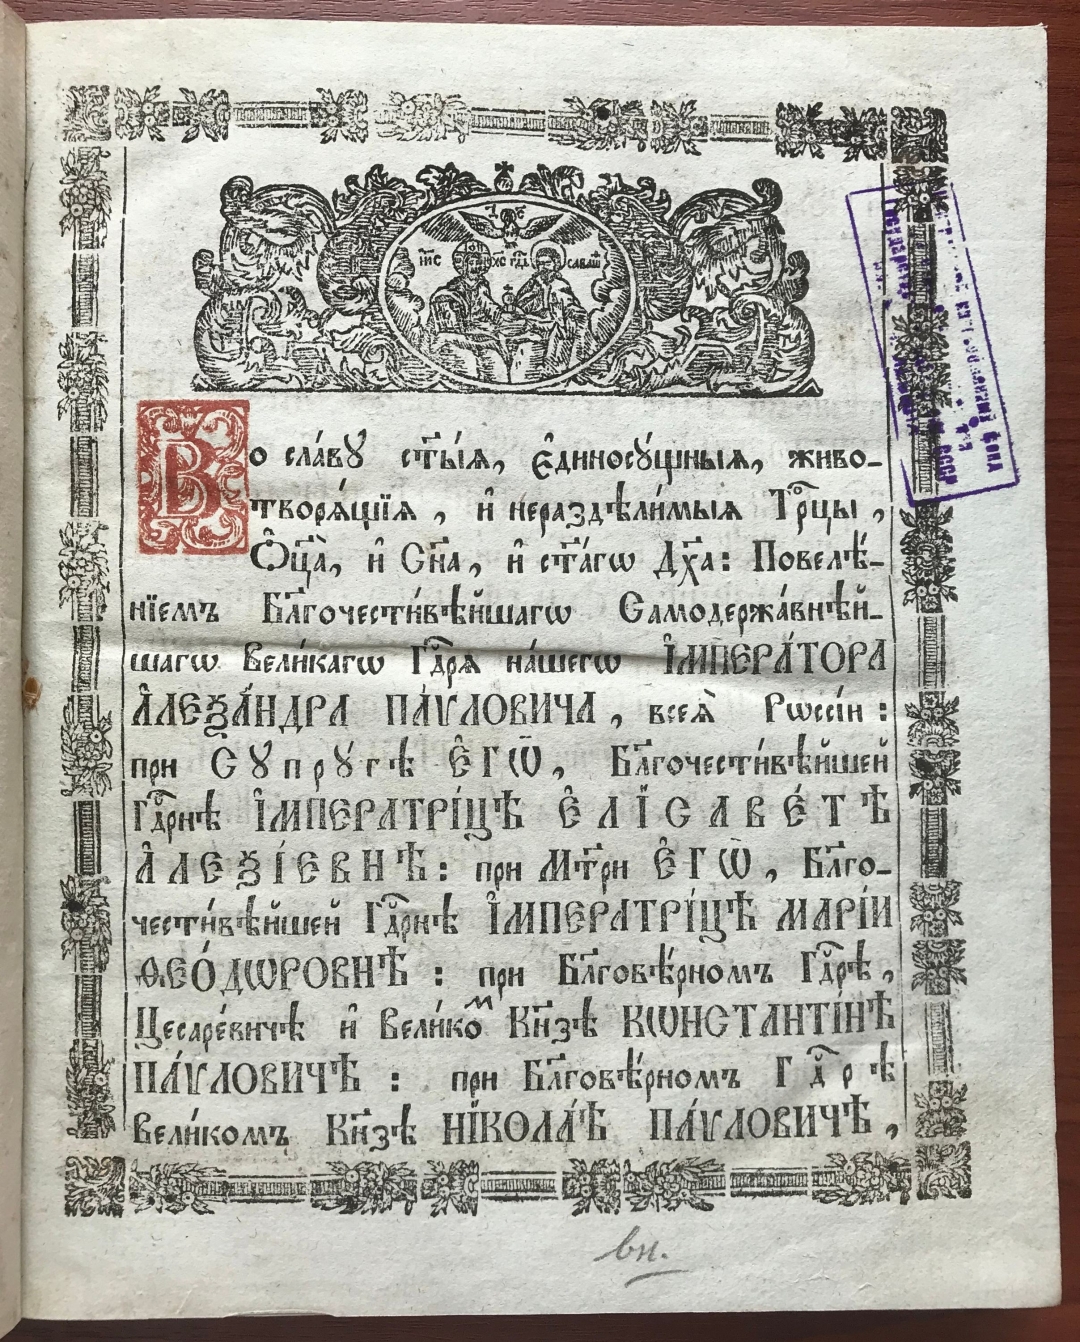 І҆И҃С ХС ГДЬ САВАѠ҆
Во сла́вꙋ ст҃ы́ѧ, є҆диносꙋ́щныѧ, живо-
творѧ́щїѧ, и҆ нераздѣли́мыѧ Трⷪ҇цы,
Ѻ҆ц҃а̀, и҆ Сн҃а, и҆ ст҃а́гѡ Дх҃а: Повелѣ́-
нїемъ Бл҃гочести́вѣйшагѡ Самодержа́внѣй-
шагѡ Вели́кагѡ Гдⷭ҇рѧ на́шегѡ І҆МПЕРА́ТОРА
А҆ЛЕѮА́НДРА ПА́ѴЛОВИЧА, всеѧ̀ Рѡссі́и:
при Сꙋпрꙋгѣ Є҆ГѠ̀, Бл҃гочести́вѣйшей
Гдⷭ҇рнѣ І҆МПЕРАТРІ́ЦѢ Є҆ЛІСАВЕ́ТѢ
А҆ЛЕѮІ́ЕВНѢ: при Мт҃ри Є҆ГѠ̀, Бл҃го-
чести́вѣйшей Гдⷭ҇рнѣ І҆МПЕРАТРІ́ЦѢ МАРІ́И
ѲЕО́ДѠРОВНѢ: при Бл҃говѣ́рномъ Гдⷭ҇рѣ,
Цесаре́вичѣ и҆ Вели́коⷨ Кн҃зѣ КѠНСТАНТІ́НѢ
ПА́ѴЛОВИЧѢ: при Бл҃говѣ́рномъ Гдⷭ҇рѣ
Вели́комъ Кн҃зѣ НІКОЛА́Ѣ ПА́ѴЛОВИЧѢ,
вн.